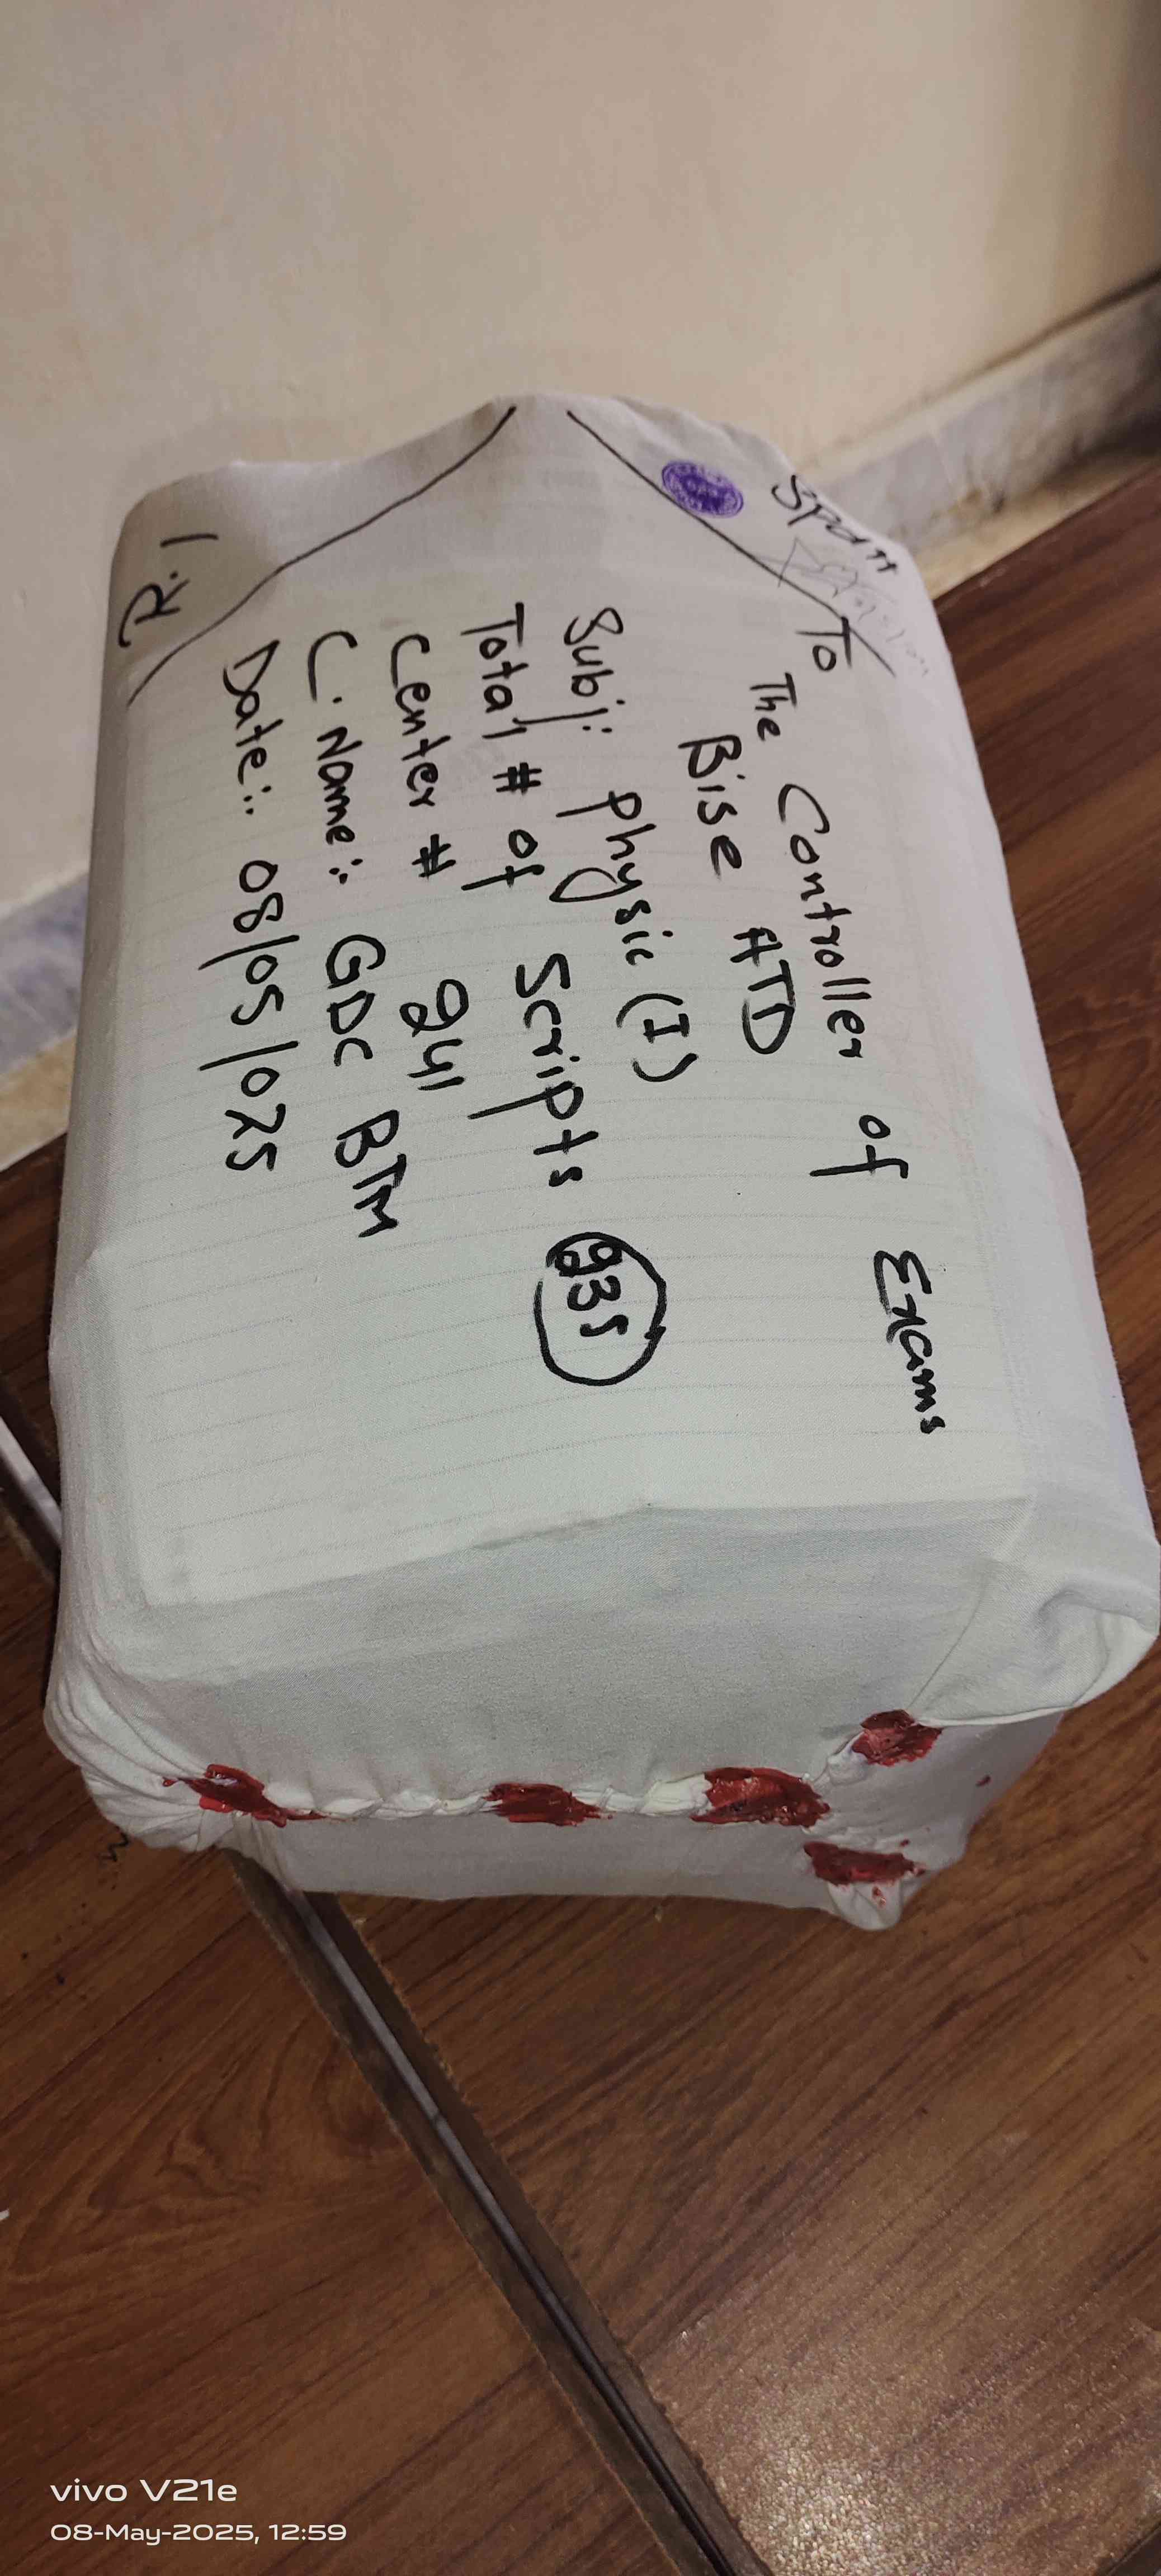 To
The Controller of Exams
Bise ATD
Subj: Physic (I)
Total # of Scripts 935
Center # 241
C. Name:. GDC BTM
Date:. 08/05/025
R.1
vivo V21e
08-May-2025, 12:59